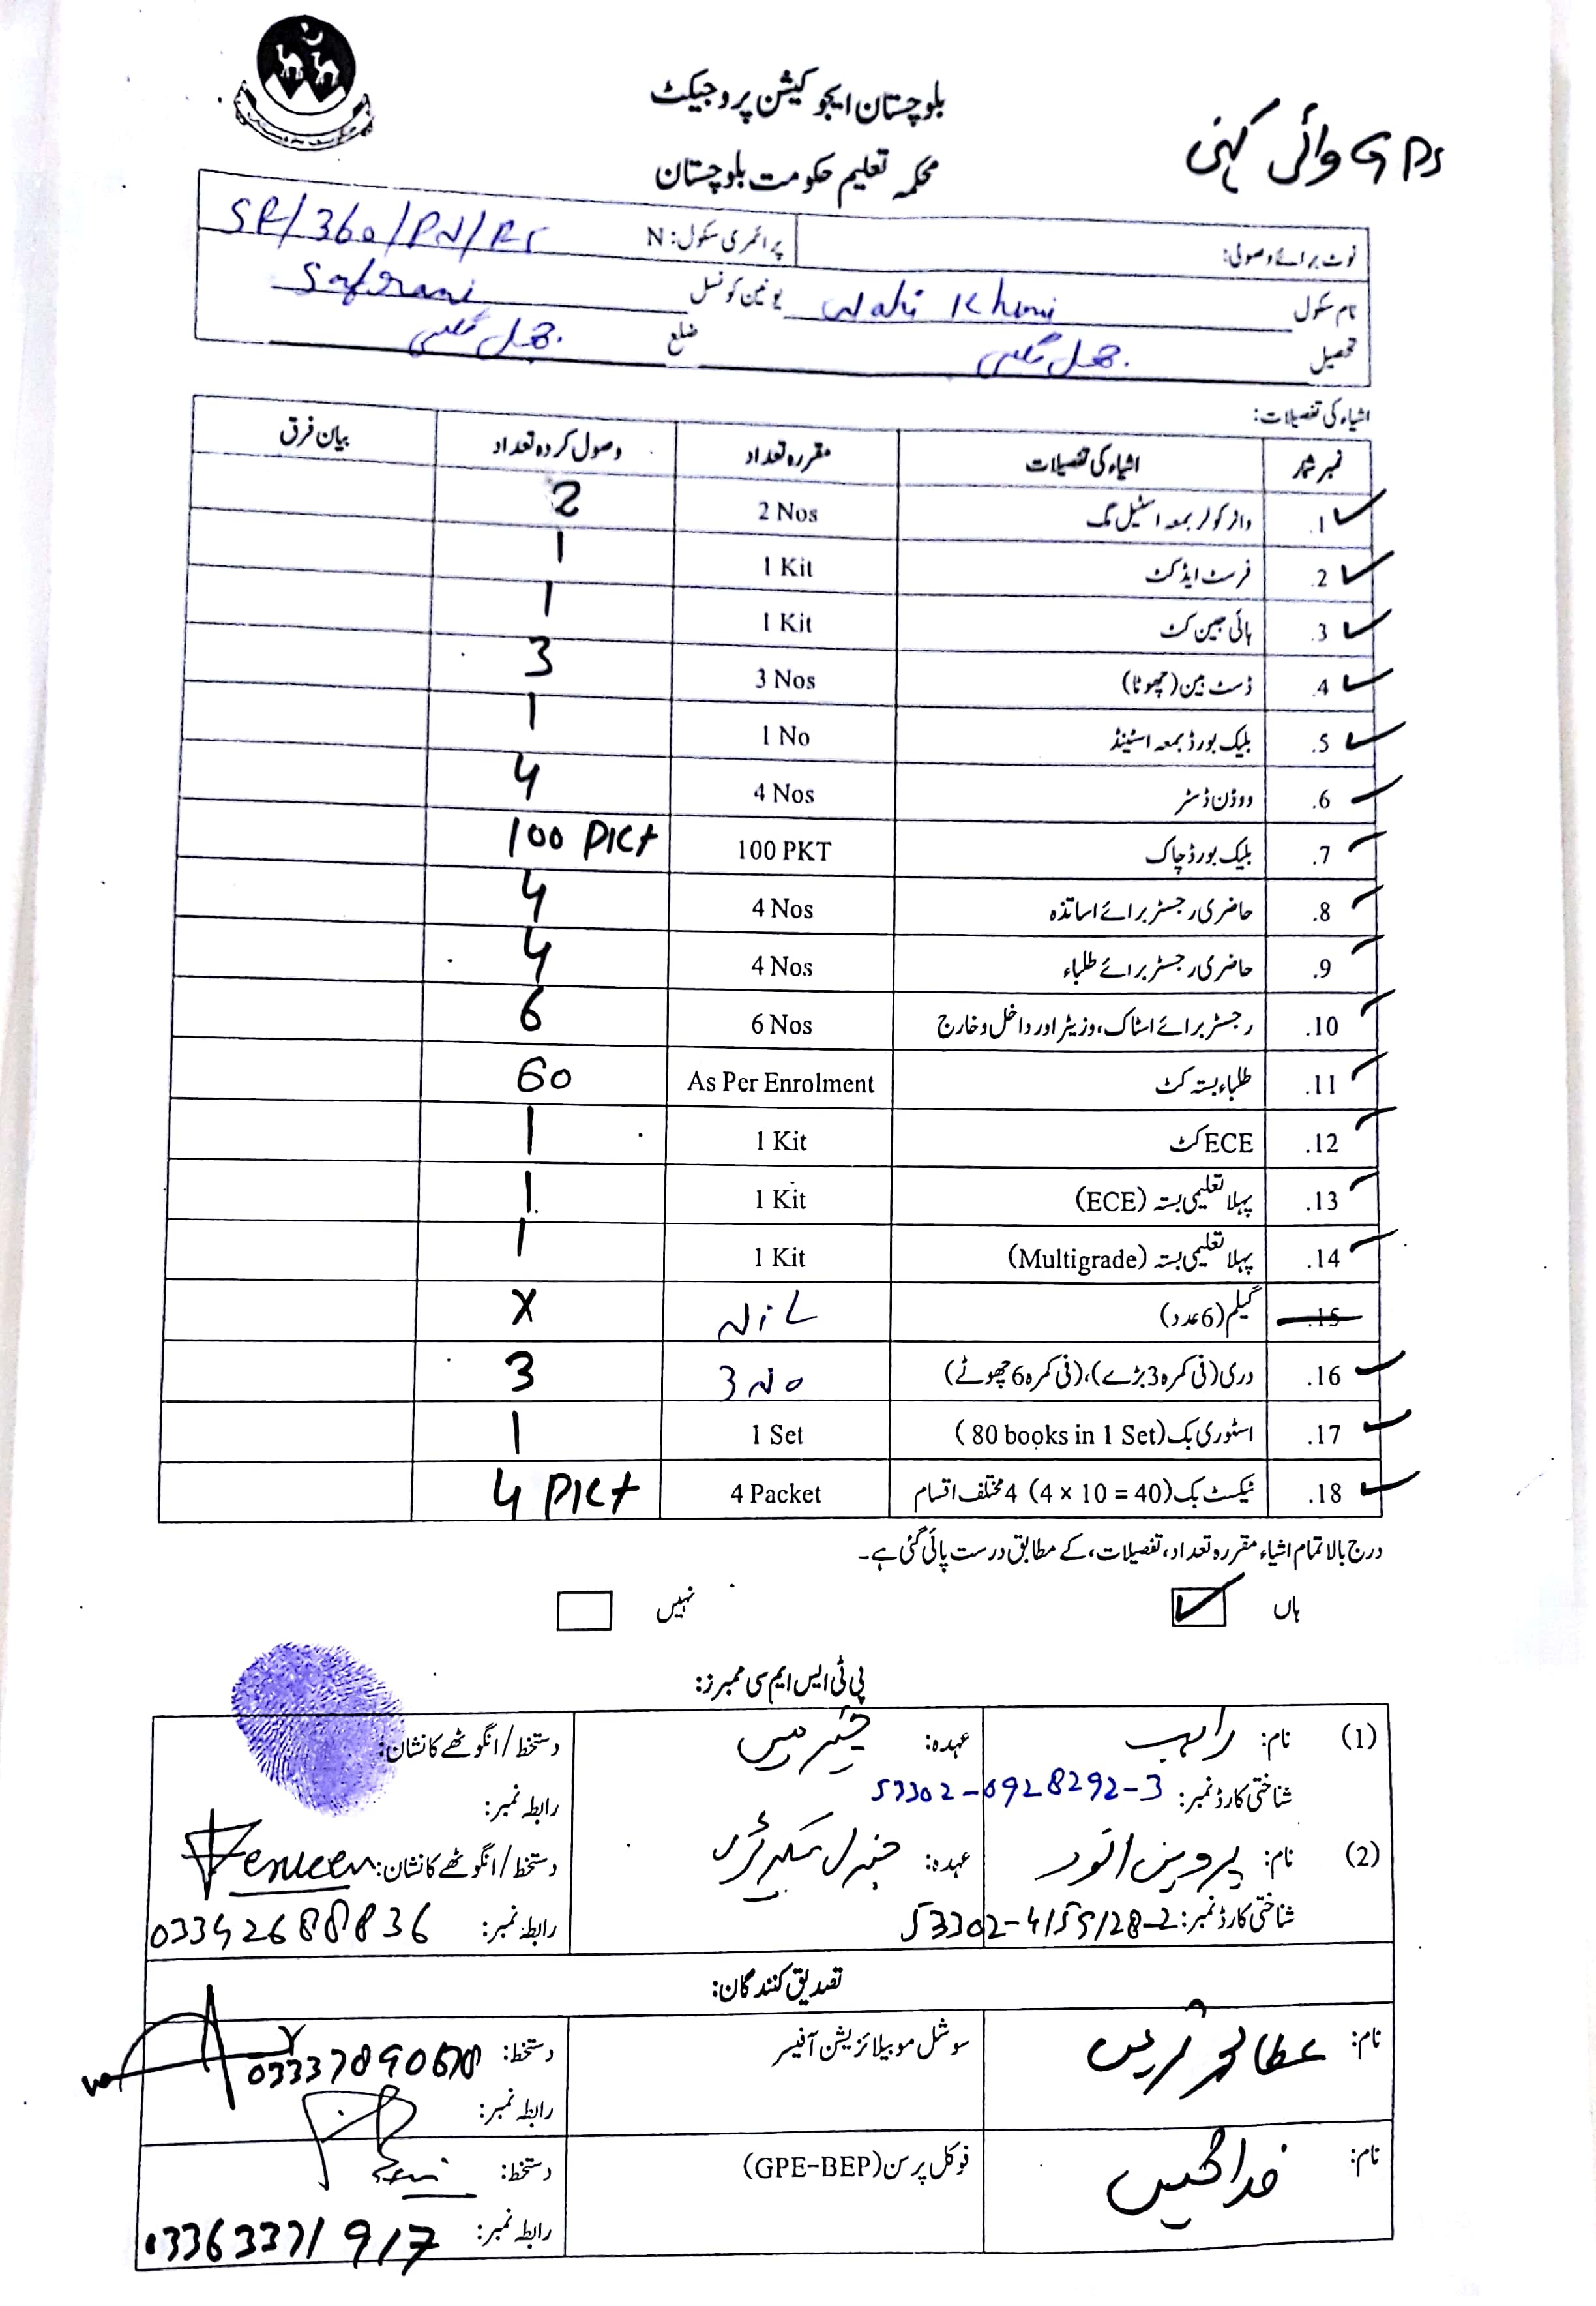 بلوچستان ایجوکیشن پروجیکٹ
محکمہ تعلیم حکومت بلوچستان
GPS وائی کہنی
نوٹ برائے وصولی: پرائمری سکول: N SR/360/PN/
نام سکول Wahi Khuni یونین کونسل Safrani
تحصیل جھل مگسی ضلع جھل مگسی
اشیاء کی تفصیلات:
نمبر شمار اشیاء کی تفصیلات مقررہ تعداد وصول کردہ تعداد بیان فرق
1. واٹر کولر بمعہ اسٹیل مگ 2 Nos 2
2. فرسٹ ایڈ کٹ 1 Kit 1
3. ہائی جین کٹ 1 Kit 1
4. ڈسٹ بین (چھوٹا) 3 Nos 3
5. بلیک بورڈ بمعہ اسٹینڈ 1 No 1
6. ووڈن ڈسٹر 4 Nos 4
7. بلیک بورڈ چاک 100 PKT 100 PKt
8. حاضری رجسٹر برائے اساتذہ 4 Nos 4
9. حاضری رجسٹر برائے طلباء 4 Nos 4
10. رجسٹر برائے اسٹاک، وزیٹر اور داخل و خارج 6 Nos 6
11. طلباء بستہ کٹ As Per Enrolment 60
12. ECE کٹ 1 Kit 1
13. پہلا تعلیمی بستہ (ECE) 1 Kit 1
14. پہلا تعلیمی بستہ (Multigrade) 1 Kit 1
15. گیلم (6 عدد) NiL X
16. دری (فی کمرہ 3 بڑے)، (فی کمرہ 6 چھوٹے) 3 No 3
17. اسٹوری بک (80 books in 1 Set) 1 Set 1
18. ٹیکسٹ بک (4 x 10 = 40) 4 مختلف اقسام 4 Packet 4 PKt
درج بالا تمام اشیاء مقررہ تعداد، تفصیلات، کے مطابق درست پائی گئی ہے۔
ہاں نہیں
پی ٹی ایس ایم سی ممبرز:
(1) نام: عہدہ: چیئرمین دستخط / انگوٹھے کا نشان:
شناختی کارڈ نمبر: 53302-0928292-3 رابطہ نمبر:
(2) نام: پروین انور عہدہ: جنرل سیکرٹری دستخط / انگوٹھے کا نشان: Perveen
شناختی کارڈ نمبر: 53302-4155128-2 رابطہ نمبر: 03342688836
تصدیق کنندگان:
نام: عطا سوشل موبیلائزیشن آفیسر دستخط:
رابطہ نمبر:
نام: فوکل پرسن (GPE-BEP) دستخط:
رابطہ نمبر: 03363371917